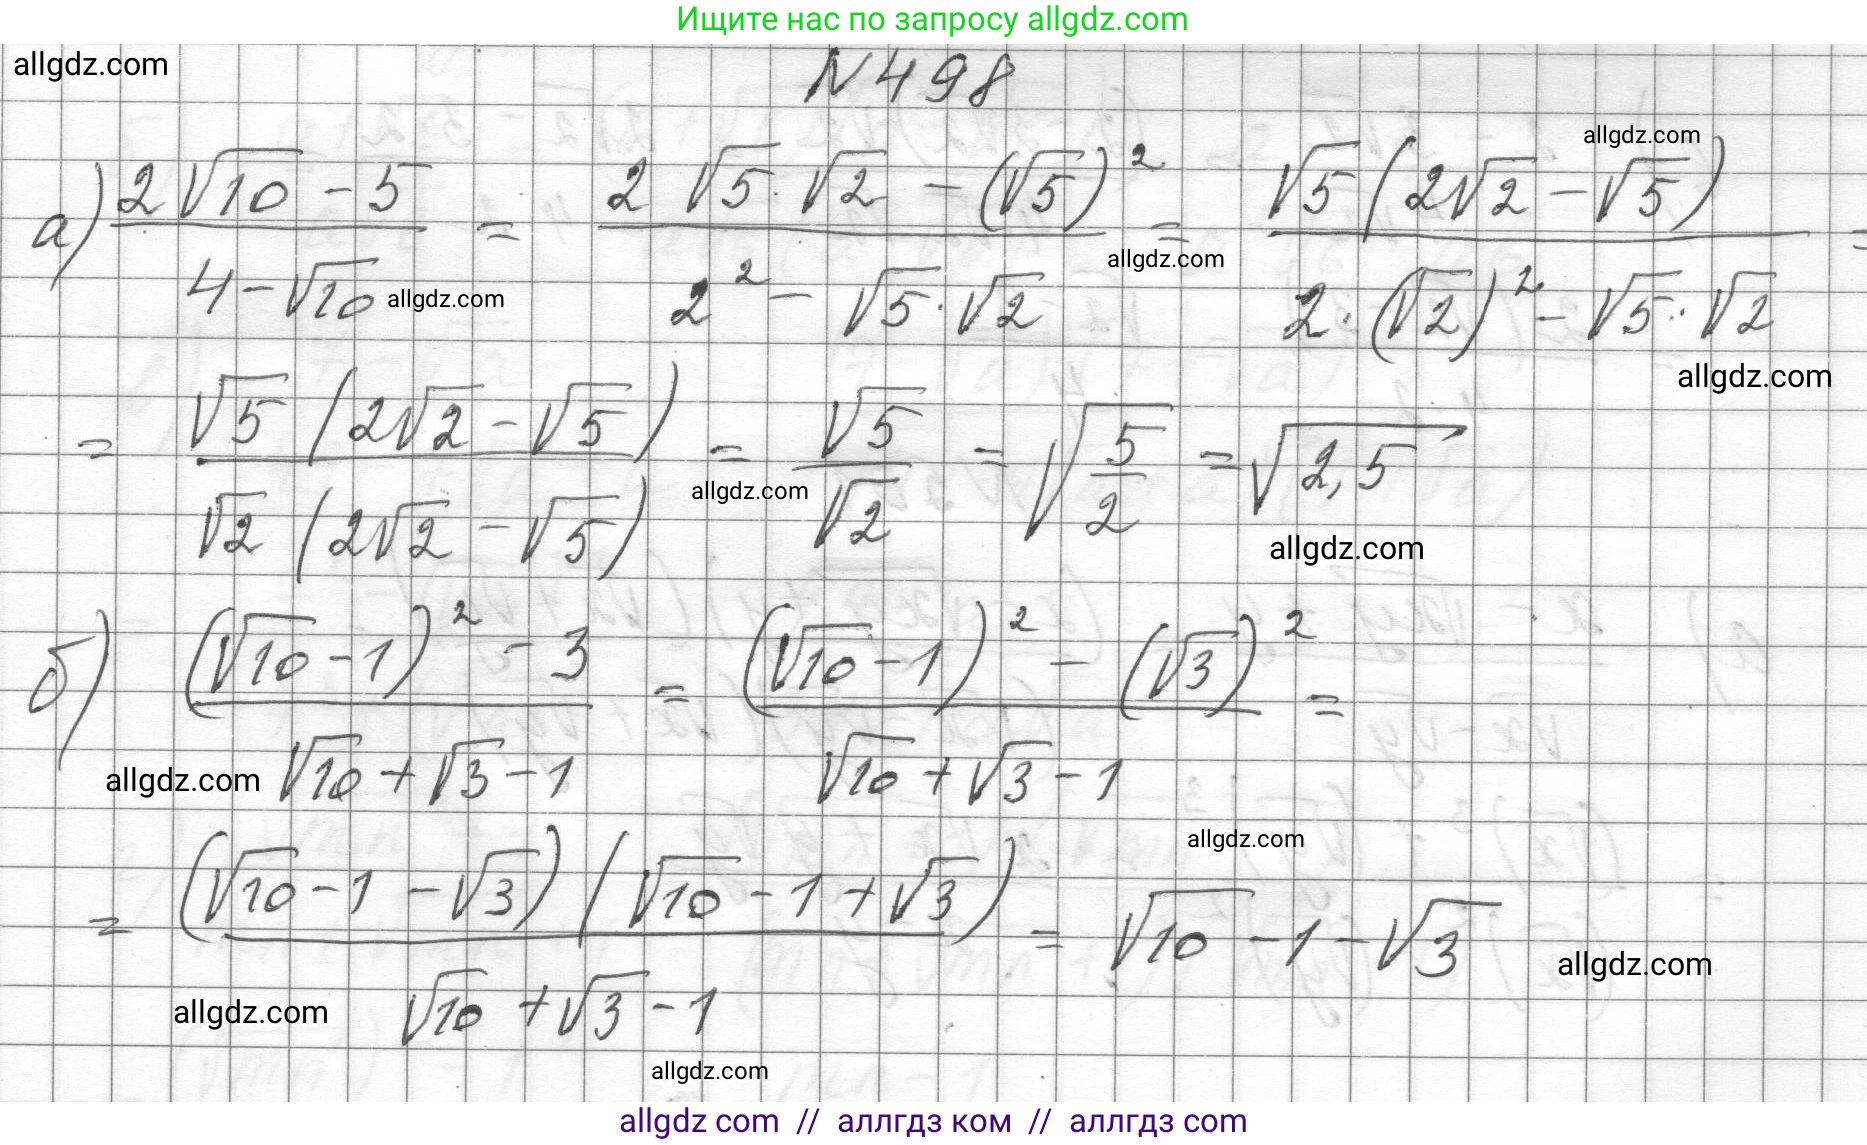 Ищите нас по запросу allgdz.com
allgdz.com
N498
allgdz.com
а) (2√10 − 5)/(4 − √10) = (2 √5·√2 − (√5)²)/(2² − √5·√2) = (√5(2√2 − √5))/(2·(√2)² − √5·√2) =
allgdz.com
allgdz.com
allgdz.com
= (√5(2√2 − √5))/(√2(2√2 − √5)) = √5/√2 = √(5/2) = √2,5
allgdz.com
allgdz.com
б) ((√10 − 1)² − 3)/(√10 + √3 − 1) = ((√10 − 1)² − (√3)²)/(√10 + √3 − 1) =
allgdz.com
allgdz.com
= ((√10 − 1 − √3)(√10 − 1 + √3))/(√10 + √3 − 1) = √10 − 1 − √3
allgdz.com
allgdz.com
allgdz.com
allgdz.com // аллгдз ком // аллгдз com